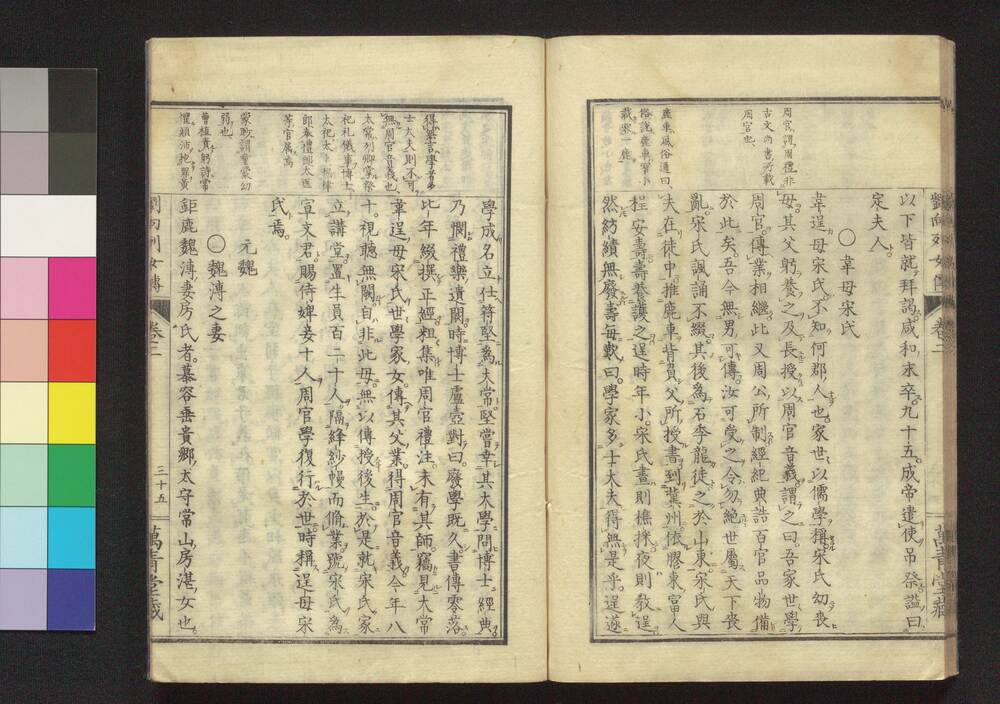 劉向列女傳
卷二
萬青堂藏
以下皆就拜謁咸和末卒九十五成帝遣使吊祭謚曰
定夫人
○韋母宋氏
韋逞母宋氏不知何郡人也家世以儒學稱宋氏幼喪
母其父躬養之及長授以周官音義謂之曰吾家世學
周官傳業相繼此又周公所制經紀典誥百官品物備
於此矣吾今無男可傳汝可受之今勿絕世屬天下喪
亂宋氏諷誦不綴其後為石季龍徒之於山東宋氏與
夫在徒中推鹿車背負父所授書到冀州依膠東富人
程安壽壽養護之逞時年小宋氏晝則樵採夜則教逞
然紡績無廢壽每歎曰學家多士大夫得無是乎逞遂
周官謂周禮非
古文尚書所載
周官也
鹿車風俗通曰
俗說鹿車窄小
載容一鹿
學成名立仕符堅為太常堅嘗幸其太學問博士經典
乃憫禮樂遺闕時博士盧壺對曰廢學既久書傳零落
比年綴撰正經粗集唯周官禮注未有其師竊見太常
韋逞母宋氏世學家女傳其父業得周官音義今年八
十視聽無闕自非此母無以傳授後生於是就宋氏家
立講堂置生員百二十人隔絳紗幔而脩業號宋氏為
宣文君賜侍婢妾十人周官學復行於世時稱逞母宋
氏焉
元魏
○魏溥之妻
鉅鹿魏溥妻房氏者慕容垂貴鄉太守常山房湛女也
士大夫則不可
無周官音義也
太常列卿掌祭
祀礼儀事博士
等官屬焉
蒙眇謂童蒙幼
弱也
曹植責躬詩常
懼顛沛抱罪黃
劉向列女傳
卷二
三十五
萬青堂藏